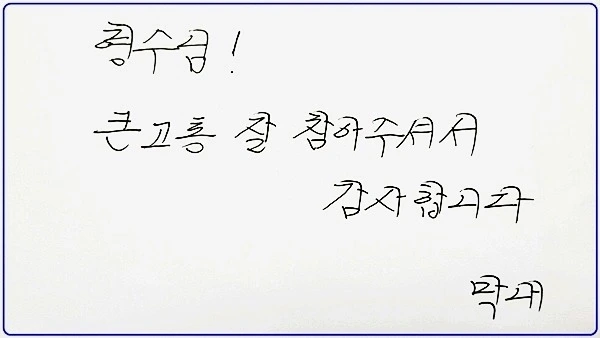 형수님!
큰고통 잘 참아주셔서
감사합니다
막내